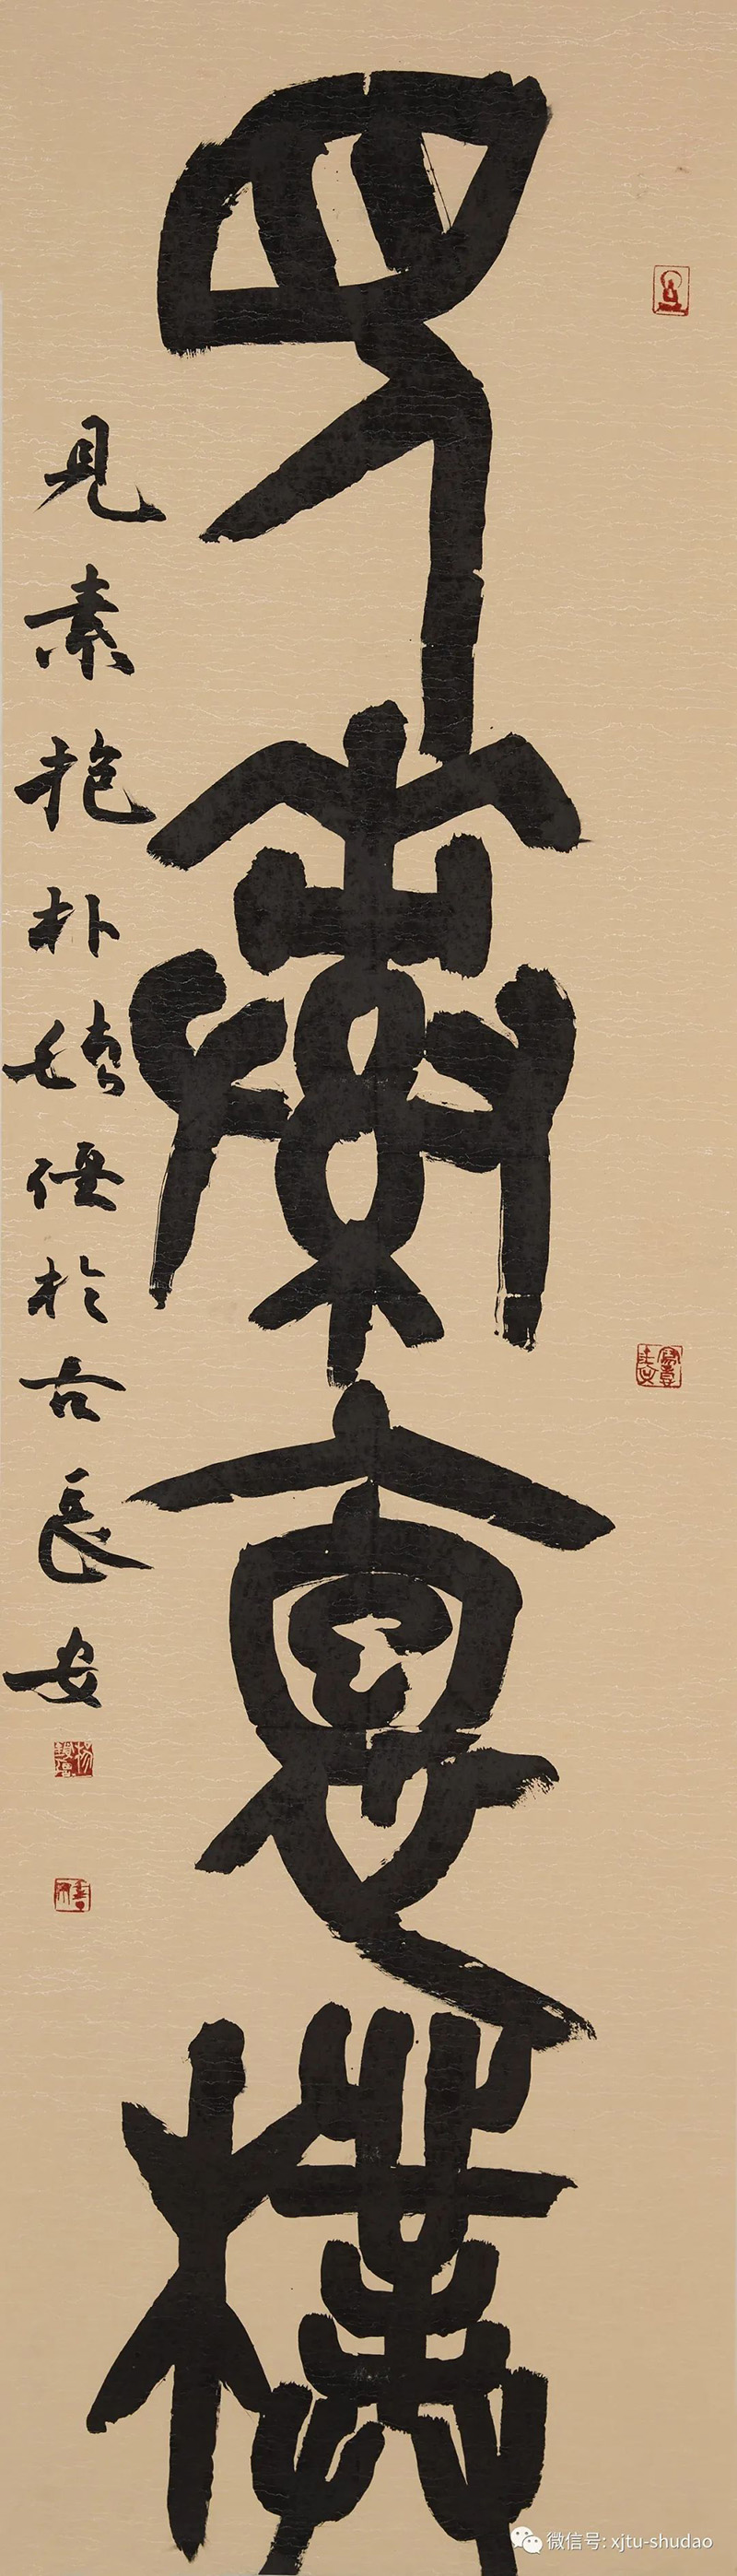 見素裹樸
見素抱朴 於古長安
微信号: xjtu-shudao